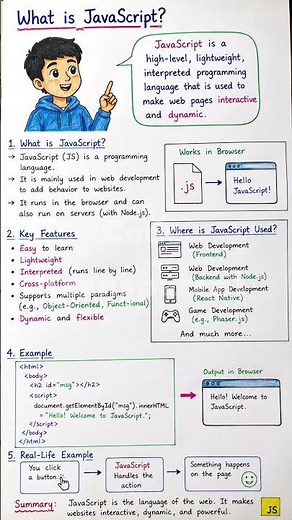 What is JavaScript?
JavaScript is a
high-level, lightweight,
interpreted programming
language that is used to
make web pages interactive
and dynamic.
1. What is JavaScript?
→ JavaScript (JS) is a programming
language.
→ It is mainly used in web development
to add behavior to websites.
→ It runs in the browser and can
also run on servers (with Node.js).
Works in Browser
.js
Hello
JavaScript!
2. Key Features
• Easy to learn
• Lightweight
• Interpreted (runs line by line)
• Cross-platform
• Supports multiple paradigms
(e.g., Object-Oriented, Funct-ional)
• Dynamic and flexible
3. Where is JavaScript Used?
Web Development
(Frontend)
Web Development
(Backend with Node.js)
Mobile App Development
(React Native)
Game Development
(e.g., Phaser.js)
And much more...
4. Example
<html>
<body>
<h2 id="msg"></h2>
<script>
document.getElementById("msg").innerHTML
= "Hello! Welcome to JavaScript.";
</script>
</body>
</html>
Output in Browser
Hello! Welcome to
JavaScript.
5. Real-Life Example
You click
a button
JavaScript
Handles the
action
Something happens
on the page
Summary: JavaScript is the language of the web. It makes
websites interactive, dynamic, and powerful.
JS